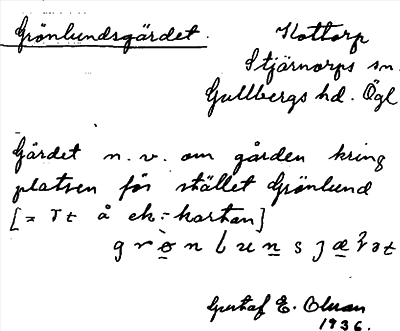 Grönlundsgärdet.
Kottorp
Stjärnorps sn.
Gullbergs hd. Ögl
Gärdet n. v. om gården kring
platsen för stället Grönlund
[= Tt å ek.-kartan]
Gustaf E.
1936.